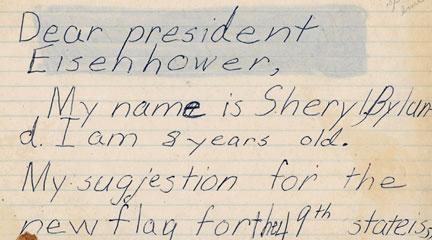 Dear president
Eisenhower,
My name is Sheryl Bylan
d. I am 8 years old.
My sugjestion for the
new flag for the 49th state is,